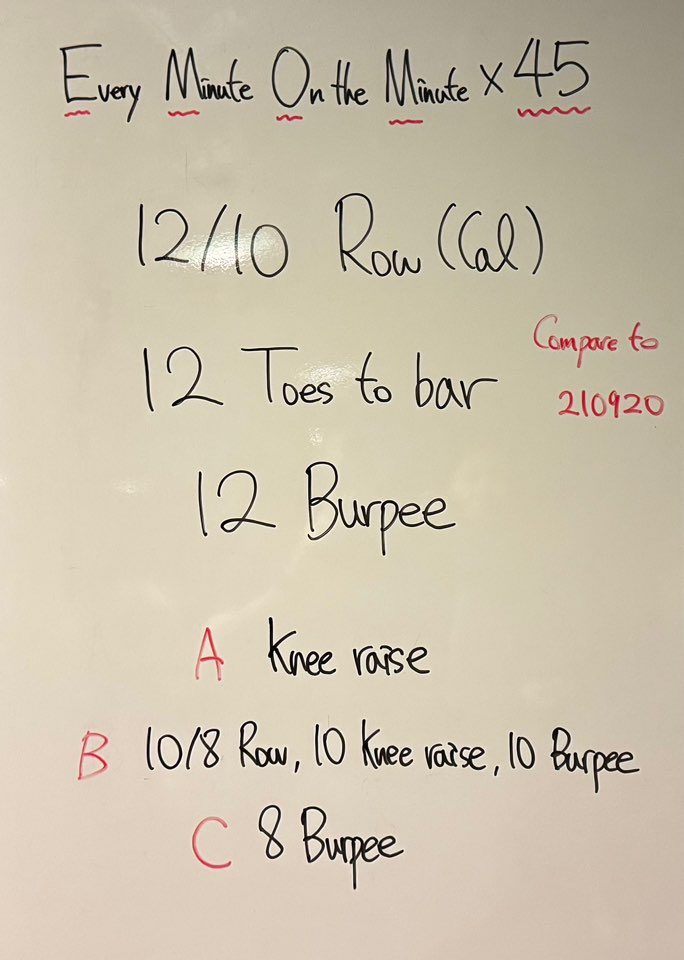 Every Minute On the Minute × 45
12/10 Row (Cal)
12 Toes to bar
Compare to
210920
12 Burpee
A Knee raise
B 10/8 Row, 10 Knee raise, 10 Burpee
C 8 Burpee